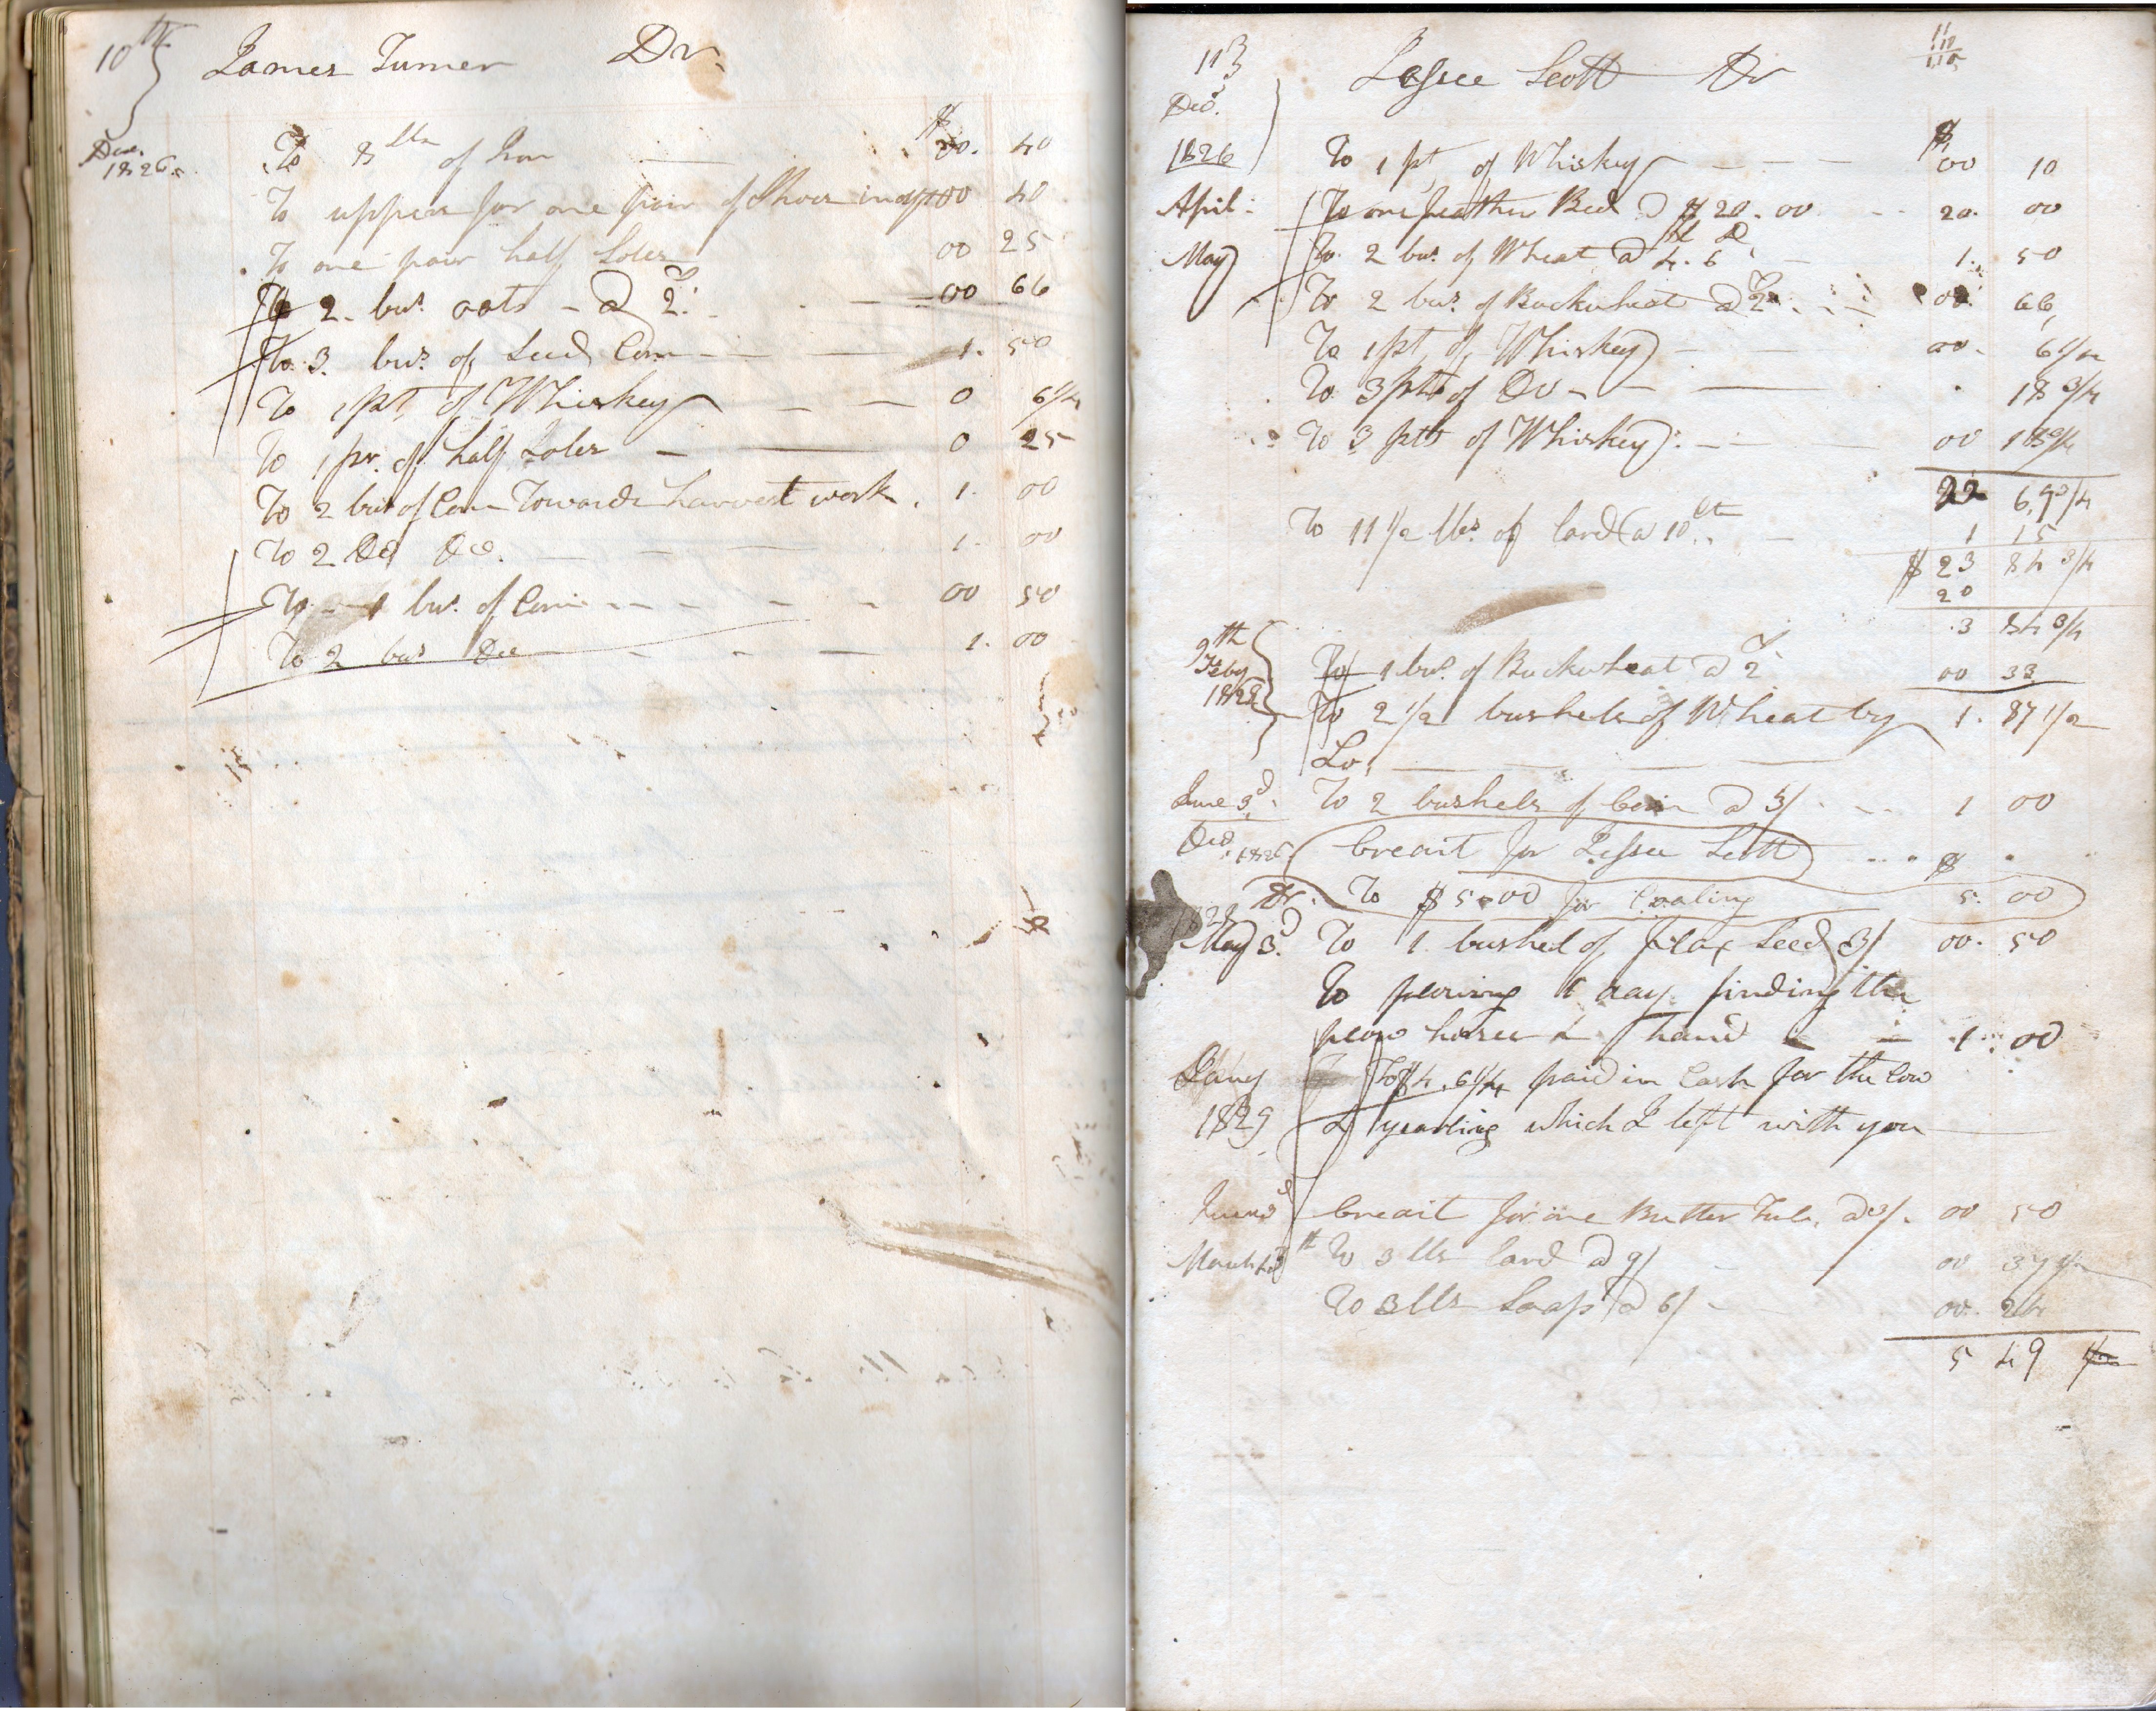 10th James Turner Dr.
$
Dec. 1826. To 8 lbs of Iron 00. 40
To uppers for one pair of Shoes 00 40
To one pair half Soles 00 25
To 2 bus. oats - @ 2/ 00 66
To 3 bus. of Seed Corn 1. 50
To 1 pt of Whiskey 0 6 1/4
To 1 pr. of half Soles 0 25
To 2 bus of Corn Towards harvest work. 1. 00
To 2 Do Do. 1. 00
To 1 bus. of Corn 00 50
To 2 bus Do 1. 00
113 Jesse Scott Dr
Dec.
$
1826 To 1 pt of Whiskey 00 10
April. To one feather Bed @ $20.00 20. 00
May To 2 bus. of Wheat @ 4.6 1. 50
To 2 bus. of Buckwheat @ 2/ 00. 66
To 1 pt of Whiskey 00. 6 1/4
To 3 pts of Do 18 3/4
To 3 pts of Whiskey 00 18 3/4
22 69 3/4
To 11 1/2 lbs of lard @ 10 ct 1 15
$ 23 84 3/4
20
3 84 3/4
9th Feby 1828 To 1 bus. of Buckwheat @ 2/ 00 33
To 2 1/2 bushels of Wheat by 1. 87 1/2
Lo.
June 3d. To 2 bushels of Corn @ 3/ 1 00
Dec. 1826 Creait for Jesse Scott $
Dr. To $5.00 for Coaling 5. 00
May 3d To 1 bushel of flax Seed 3/ 00. 50
To plowing 1 day finding the
plow horses & hand 1. 00
Jany To $4.6 1/4 paid in Cash for the Cow
1829 & yearling which I left with you
Creait for one Butter Tub. @ 3/. 00 50
March th To 3 lbs lard @ 9/ 00 37 1/2
To 3 lbs Soap @ 6/ 00. 24
5 49